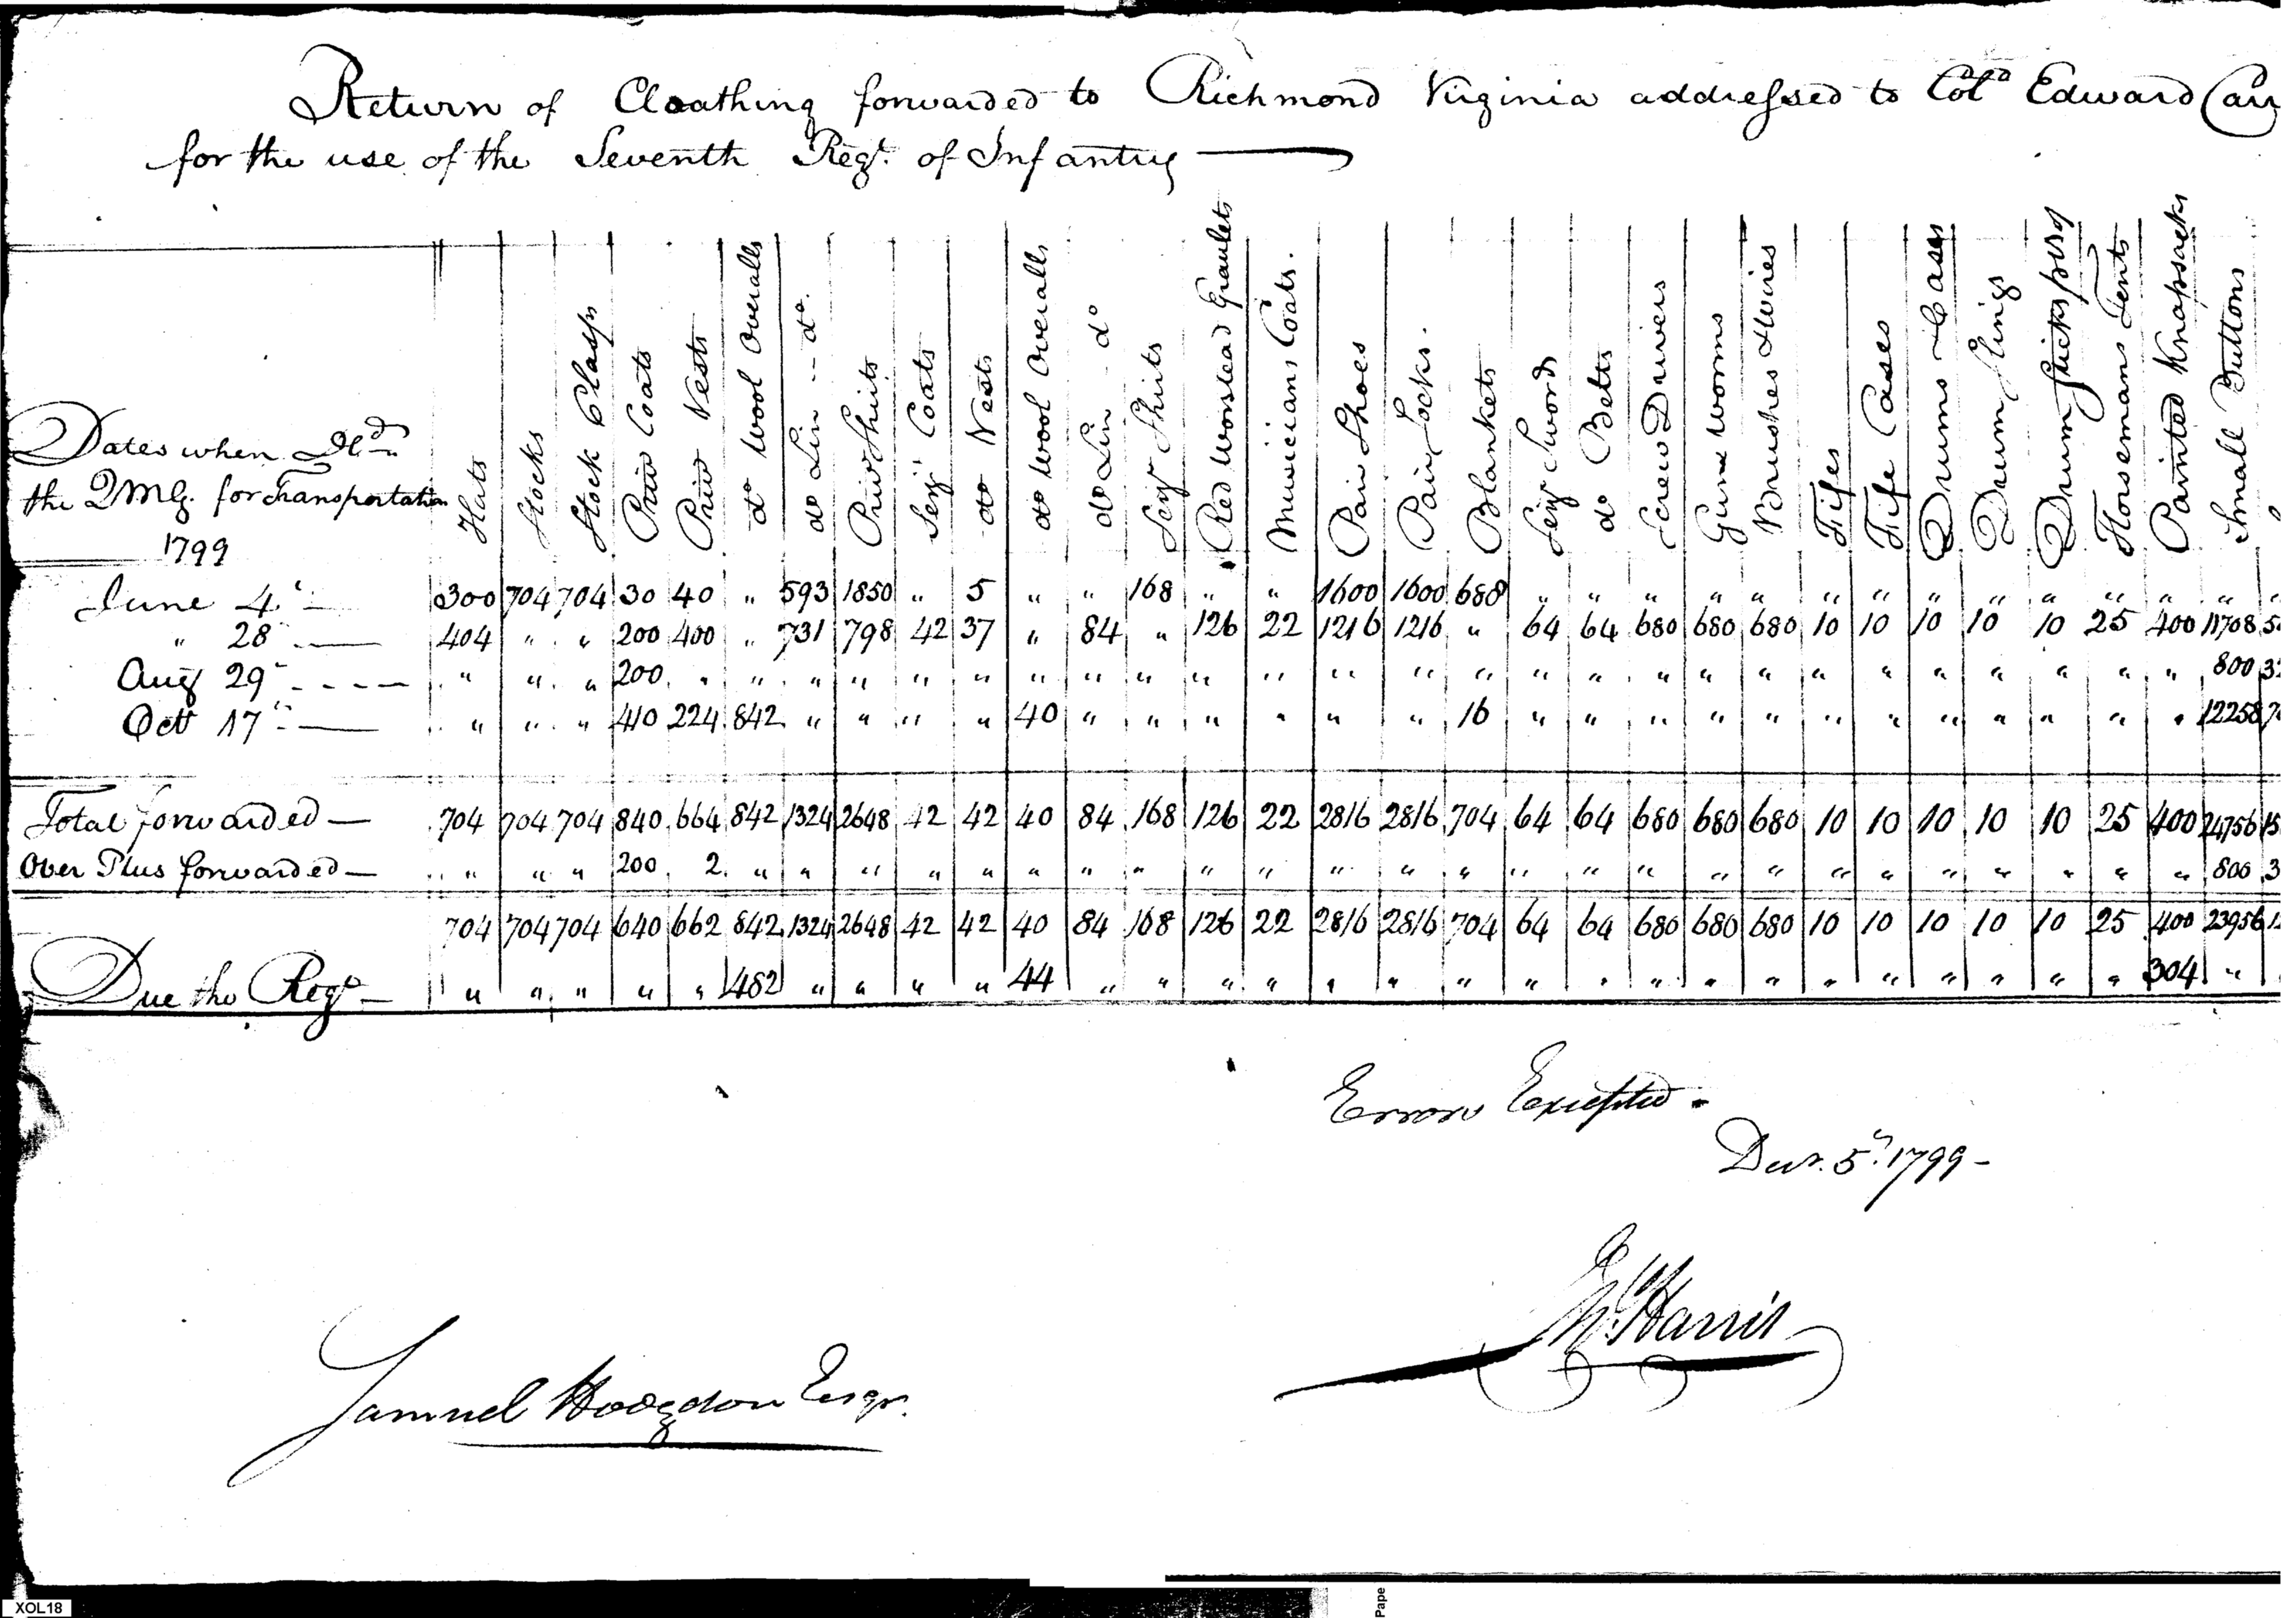 Return of Cloathing forwarded to Richmond Virginia addressed to Colo Edward Carr
for the use of the Seventh Regt. of Infantry
Dates when Dld
the QMG. for Transportation
1799
Hats
Stocks
Stock Clasps
Priv Coats
Priv Vests
do Wool Overalls
do Lin do.
Priv Shirts
Serjt Coats
do Vests
do Wool Overalls
do Lin do
Serjt Shirts
Red Worstead Epaulets
Musicians Coats.
Pair Shoes
Pair Socks.
Blankets
Serjt Swords
do Belts
Screw Drivers
Gun Worms
Brushes & Wires
Fifes
Fife Cases
Drums & Cases
Drum Slings
Drum Sticks pirs
Horsemans Tents
Painted Knapsacks
Small Buttons
June 4 300 704 704 30 40 " 593 1850 " 5 " " 168 " " 1600 1600 688 " " " " " " " " " " " " "
" 28 404 " " 200 400 " 731 798 42 37 " 84 " 126 22 1216 1216 " 64 64 680 680 680 10 10 10 10 10 25 400 11708
Aug 29 " " " 200 " " " " " " " " " " " " " " " " " " " " " " " " " " 800
Oct 17 " " " 410 224 842 " " " " 40 " " " " " " 16 " " " " " " " " " " " " 12258
Total forwarded 704 704 704 840 664 842 1324 2648 42 42 40 84 168 126 22 2816 2816 704 64 64 680 680 680 10 10 10 10 10 25 400 24756
Over Plus forwarded " " " 200 2 " " " " " " " " " " " " " " " " " " " " " " " " " 800
704 704 704 640 662 842 1324 2648 42 42 40 84 168 126 22 2816 2816 704 64 64 680 680 680 10 10 10 10 10 25 400 23956
Due the Regt " " " " " 482 " " " " 44 " " " " " " " " " " " " " " " " " " 304 "
Errors Excepted.
Decr. 5th 1799
Harris
Samuel Hodgdon Esqr.
XOL18
Pape